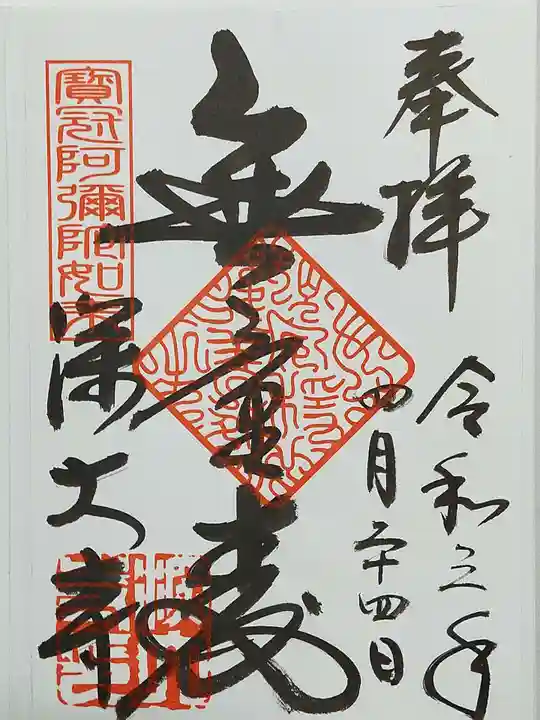 奉拝
令和三年
四月二十四日
無量壽
寶冠阿彌陀如來
深大寺